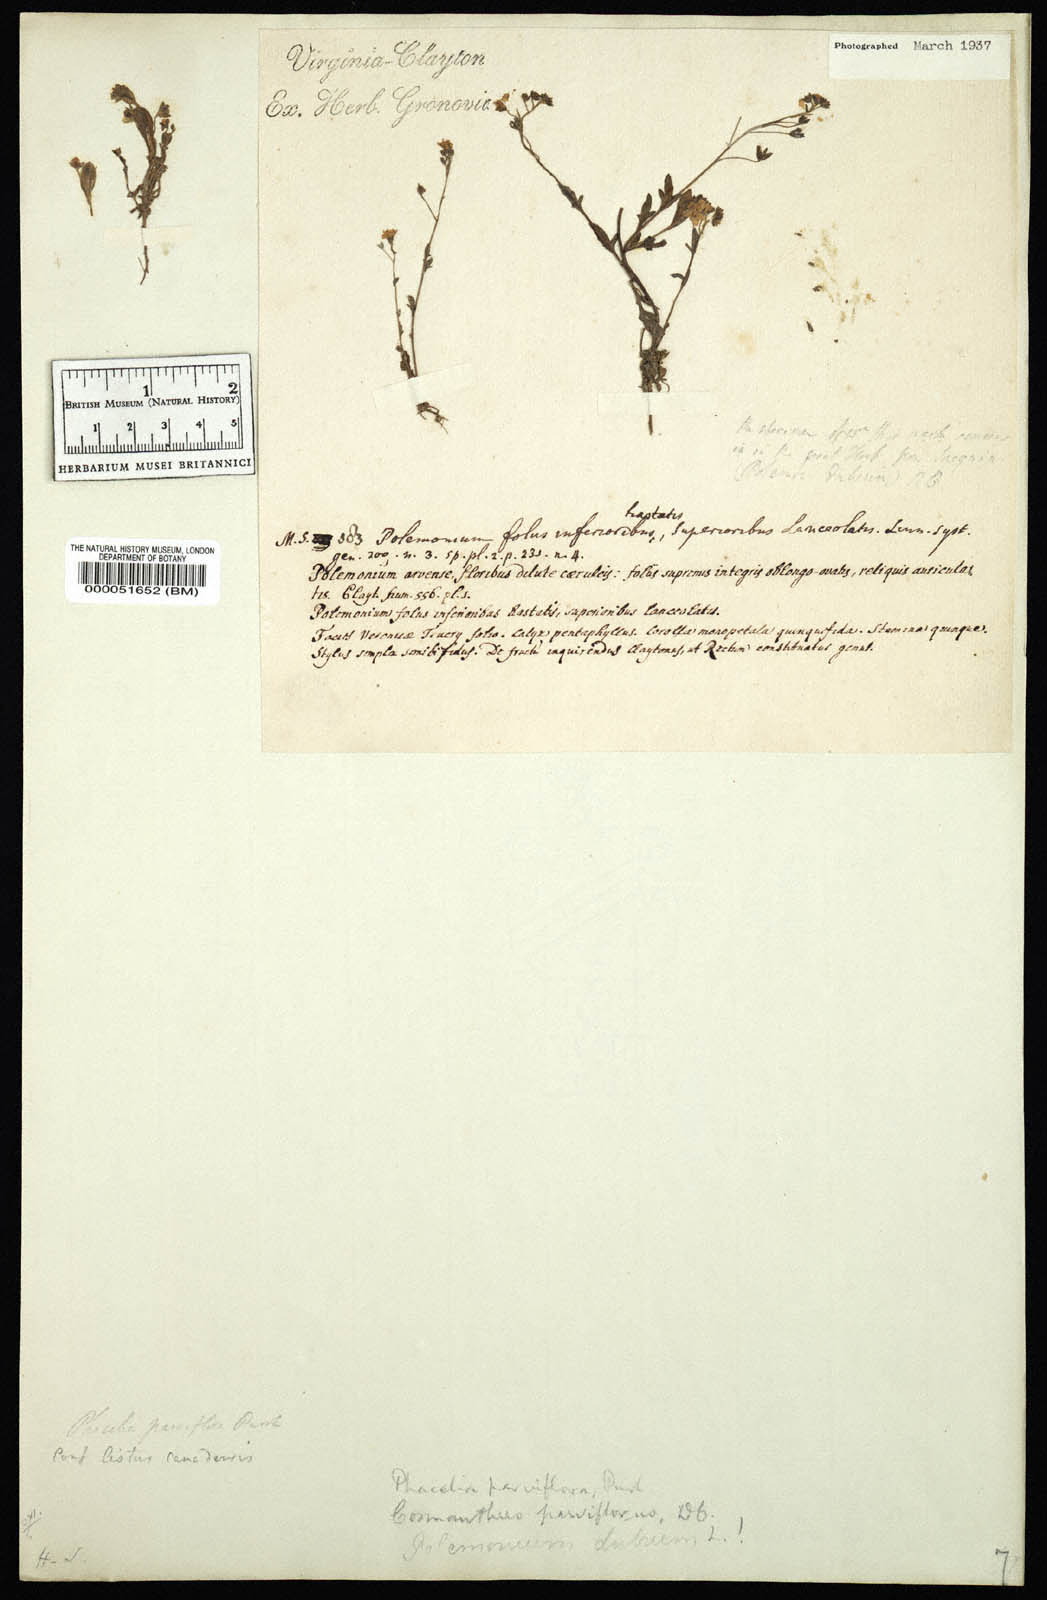 Photographed March 1937
Virginia-Clayton
Ex. Herb. Gronovia
1 2
BRITISH MUSEUM (NATURAL HISTORY)
1 2 3 4 5
HERBARIUM MUSEI BRITANNICI
THE NATURAL HISTORY MUSEUM, LONDON
DEPARTMENT OF BOTANY
000051652 (BM)
the specimen
in the great Herb. from
(Polem. dubium)
hastatis
M.S. 383 Polemonium foliis inferioribus, superioribus Lanceolatis. Linn. Syst.
gen. 200. n. 3. sp. pl. 2. p. 231. n. 4.
Polemonium arvense, floribus dilute cæruleis: foliis supremis integris oblongo-ovatis, reliquis auricula
tis. Clayt. num. 556. pl. s.
Polemonium foliis inferioribus hastatis, superioribus lanceolatis.
Facies Veronicæ folio. Calyx pentaphyllus. Corolla monopetala quinquefida. Stamina quinque.
Stylus simplex semibifidus. De fructu inquirendus Claytonus, ut constituatur genus.
Phacelia parviflora Pursh
Conf Cistus canadensis
Phacelia parviflora, Pursh
Cosmanthus parviflorus, DC.
Polemonium dubium L.!
7